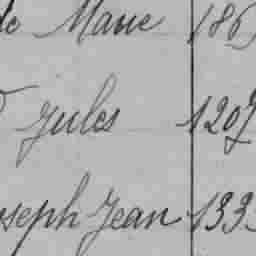 de Marie 186
Jules 1207
oseph Jean 133